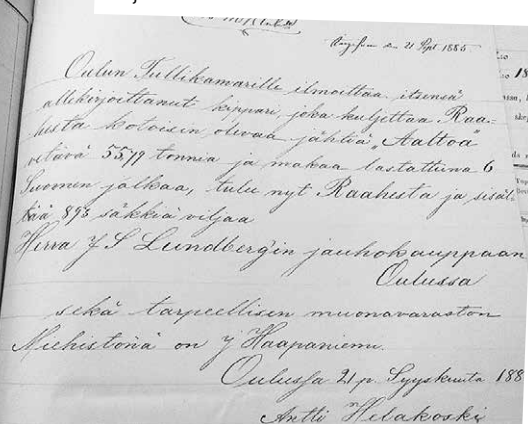 21 Sept 1885
Oulun Tullikamarille ilmoittaa itsensä
allekirjoittanut kippari, joka kuljettaa Raa-
hesta kotoisin olevaa jahtia, "Aaltoa"
vetävä 55,79 tonnia ja makaa lastattuna 6
Suomen jalkaa, tulee nyt Raahesta ja sisäl-
tää 893 säkkiä viljaa
Herra J S Lundberg'in jauhokauppaan
Oulussa
sekä tarpeellisen muonavaraston
Miehistönä on J Haapaniemi.
Oulussa 21 p. Syyskuuta 188
Antti Helakoski